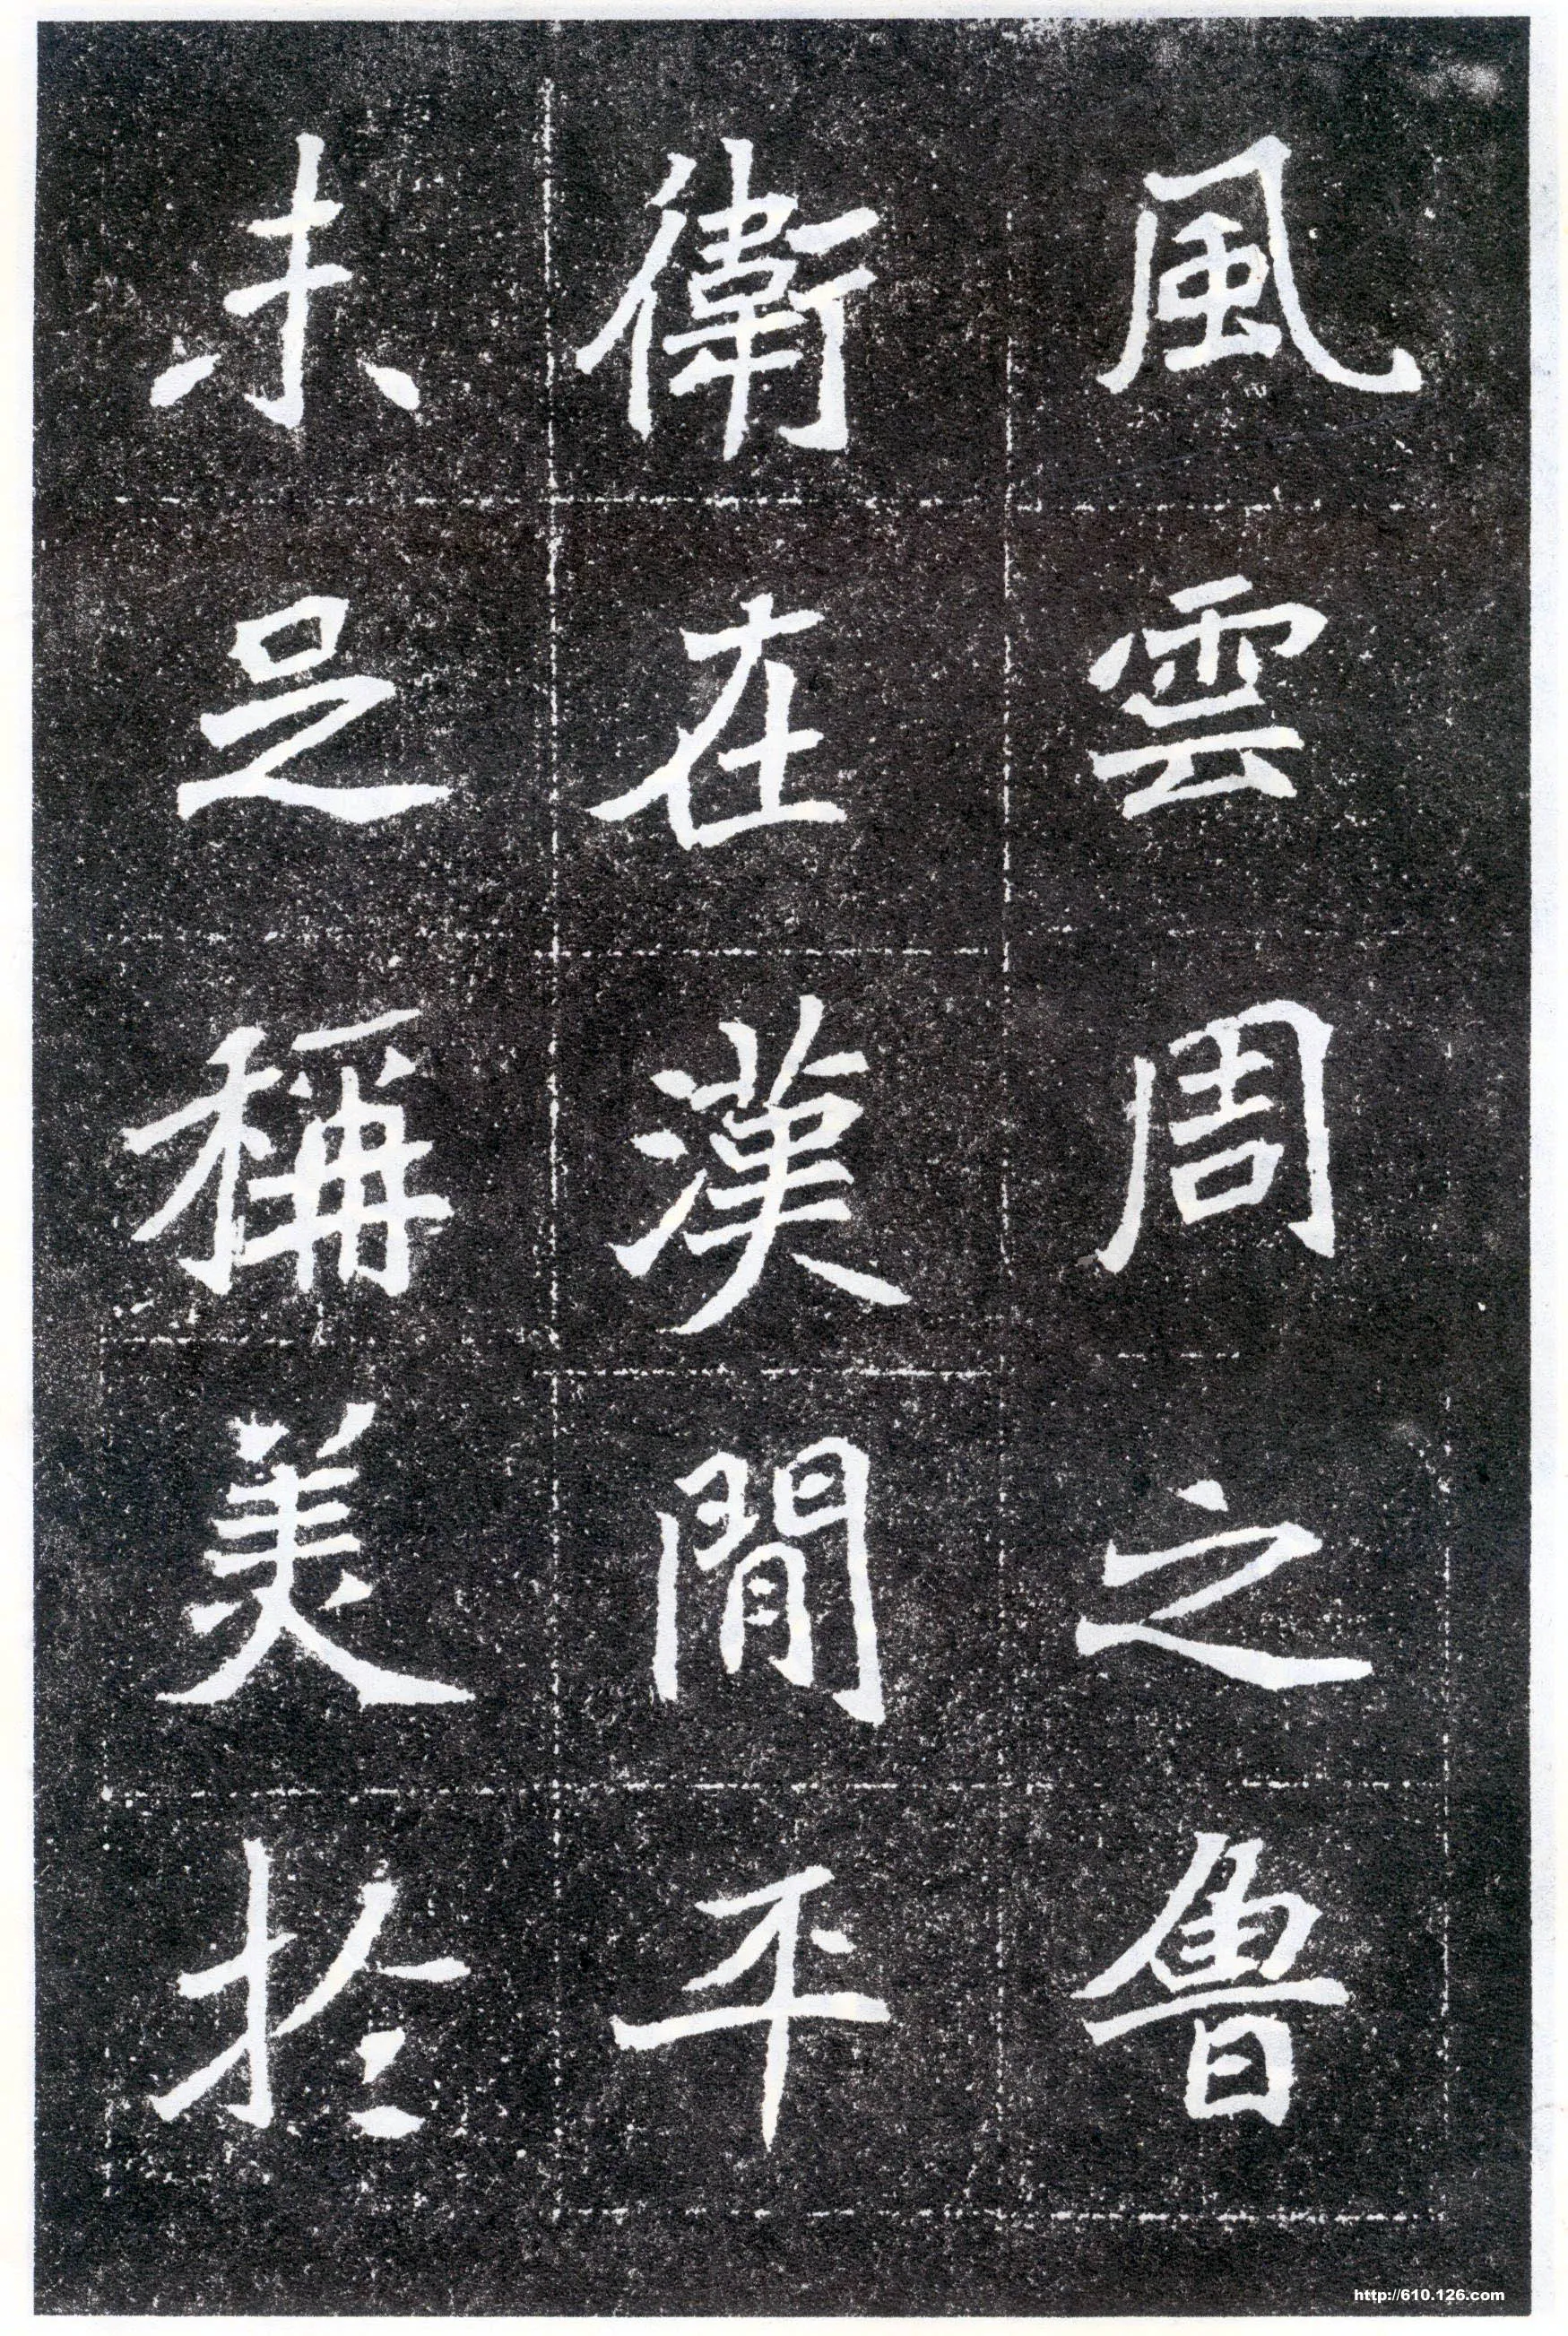 風雲周之魯
衛在漢閒平
未足稱美於
http://610.126.com